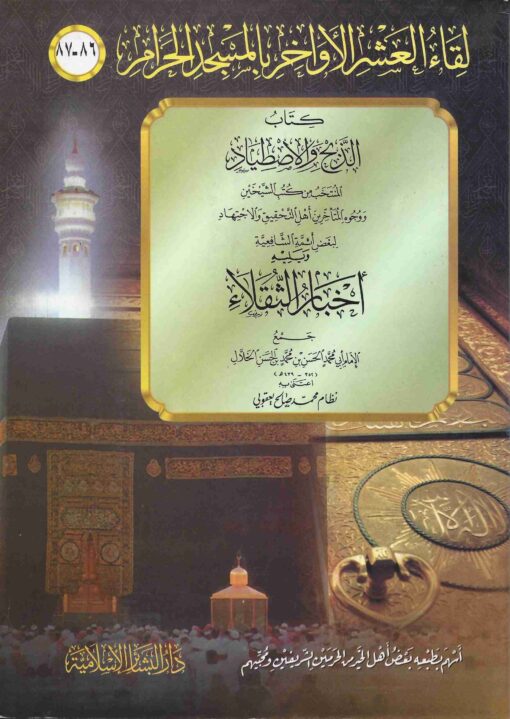 لقاء العشر الأواخر بالمسجد الحرام
٨٦-٨٧
كتاب
الذبح والاصطياد
المنتخب من كتب الشيخين
ووجوه المتأخرين أهل التحقيق والاجتهاد
لبعض أئمة الشافعية
ويليه
أخبار الثقلاء
جمع
الإمام أبي محمد الحسن بن محمد بن الحسن الخلال
(٣٥٢ - ٤٣٩ هـ)
اعتنى به
نظام محمد صالح يعقوبي
أسهم بطبعه بعض أهل الخير من الحرمين الشريفين ومحبيهم
دار البشائر الإسلامية